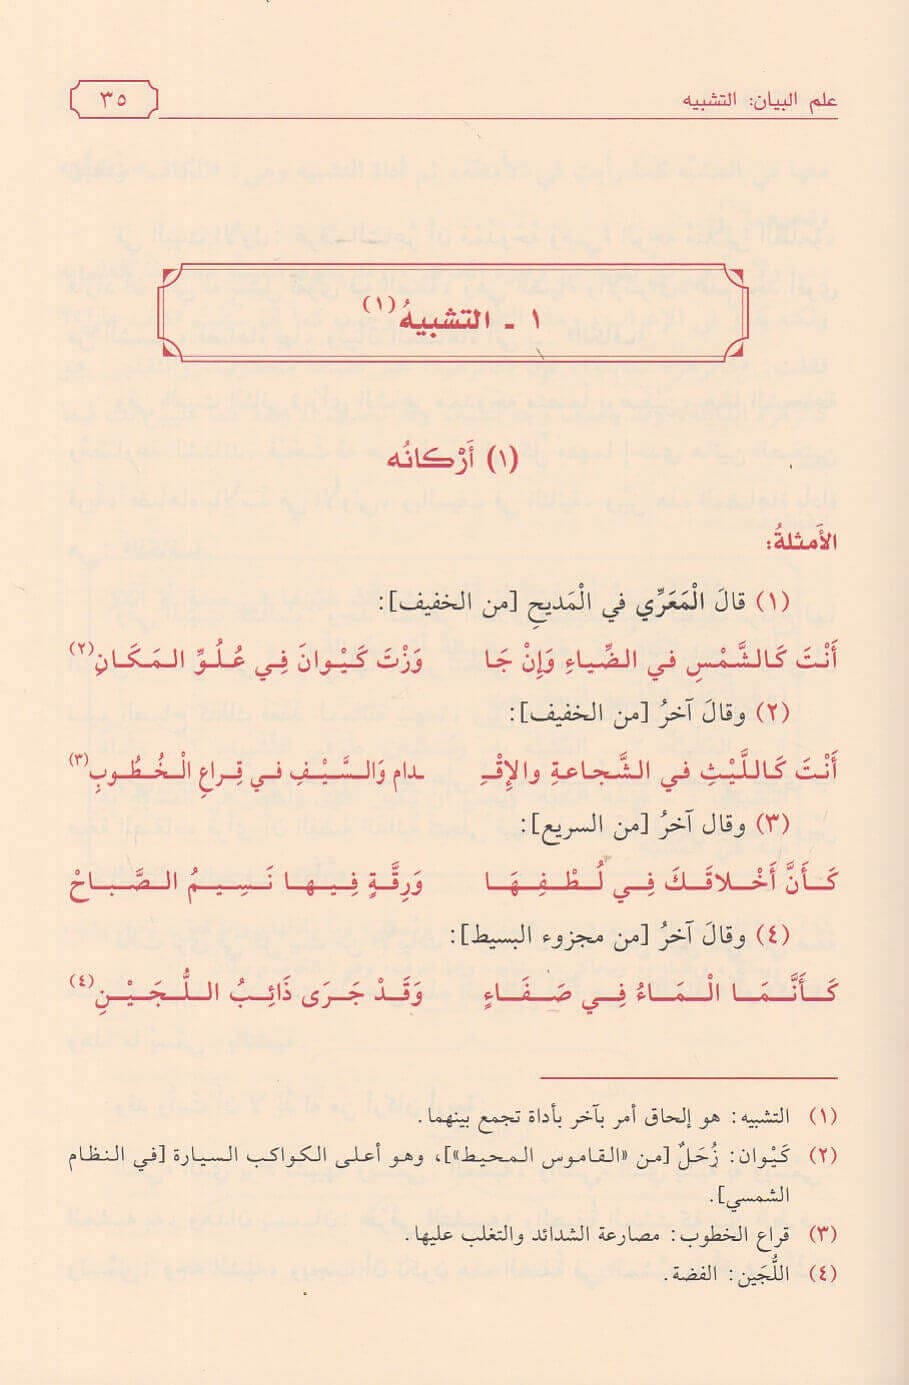 علم البيان: التشبيه
٣٥
١ - التشبيهُ(١)
(١) أَرْكانُه
الأَمثلةُ:
(١) قالَ الْمَعَرِّي في الْمَديحِ [من الخفيف]:
أَنْتَ كَالشَّمْسِ في الضِّياءِ وَإِنْ جَا وَزْتَ كَيْوانَ فِي عُلُوِّ المَكَانِ(٢)
(٢) وقالَ آخرُ [من الخفيف]:
أَنْتَ كَاللَّيْثِ في الشَّجاعةِ والإقْـ ـدام وَالسَّيْفِ في قِراعِ الْخُطُوبِ(٣)
(٣) وقال آخرُ [من السريع]:
كَأَنَّ أَخْلاقَكَ فِي لُطْفِهَا وَرِقَّةٍ فِيها نَسِيمُ الصَّباحْ
(٤) وقالَ آخرُ [من مجزوء البسيط]:
كَأَنَّمَا الْمَاءُ فِي صَفَاءٍ وَقَدْ جَرَى ذَائِبُ اللُّجَيْنِ(٤)
(١) التشبيه: هو إلحاق أمر بآخر بأداة تجمع بينهما.
(٢) كَيْوان: زُحَلٌ [من «القاموس المحيط»]، وهو أعلى الكواكب السيارة [في النظام
الشمسي].
(٣) قراع الخطوب: مصارعة الشدائد والتغلب عليها.
(٤) اللُّجَين: الفضة.